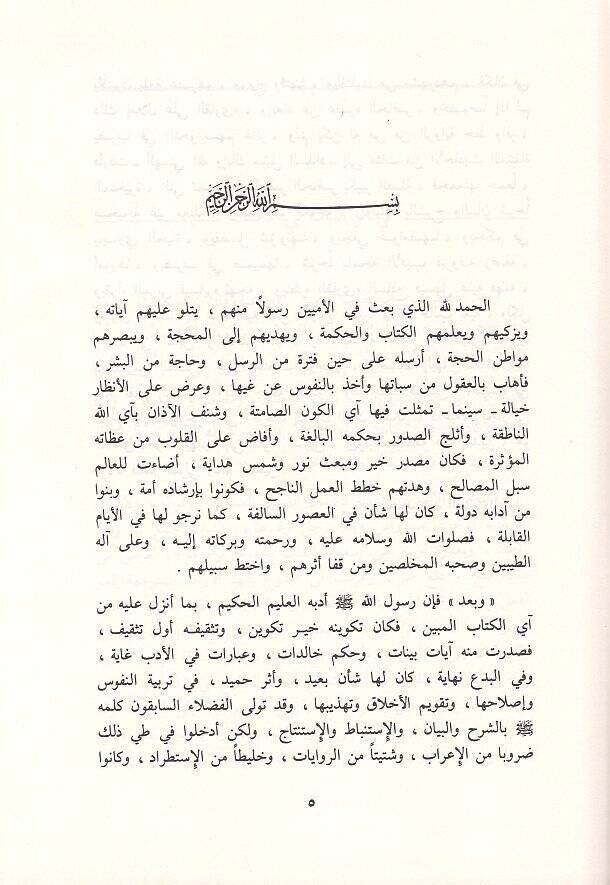 بسم الله الرحمن الرحيم
الحمد لله الذي بعث في الأميين رسولًا منهم ، يتلو عليهم آياته ،
ويزكيهم ويعلمهم الكتاب والحكمة ، ويهديهم إلى المحجة ، ويبصرهم
مواطن الحجة ، أرسله على حين فترة من الرسل ، وحاجة من البشر ،
فأهاب بالعقول من سباتها وأخذ بالنفوس عن غيها ، وعرض على الأنظار
خيالة ـ سينما ـ تمثلت فيها آي الكون الصامتة ، وشنف الآذان بآي الله
الناطقة ، وأثلج الصدور بحكمه البالغة ، وأفاض على القلوب من عظاته
المؤثرة ، فكان مصدر خير ومبعث نور وشمس هداية ، أضاءت للعالم
سبل المصالح ، وهدتهم خطط العمل الناجح ، فكونوا بإرشاده أمة ، وبنوا
من آدابه دولة ، كان لها شأن في العصور السالفة ، كما نرجو لها في الأيام
القابلة ، فصلوات الله وسلامه عليه ، ورحمته وبركاته إليه ، وعلى آله
الطيبين وصحبه المخلصين ومن قفا أثرهم ، واختط سبيلهم .
« وبعد » فإن رسول الله ﷺ أدبه العليم الحكيم ، بما أنزل عليه من
آي الكتاب المبين ، فكان تكوينه خير تكوين ، وتثقيفه أول تثقيف ،
فصدرت منه آيات بينات ، وحكم خالدات ، وعبارات في الأدب غاية ،
وفي البدع نهاية ، كان لها شأن بعيد ، وأثر حميد ، في تربية النفوس
وإصلاحها ، وتقويم الأخلاق وتهذيبها ، وقد تولى الفضلاء السابقون كلمه
ﷺ بالشرح والبيان ، والإستنباط والإستنتاج ، ولكن أدخلوا في طي ذلك
ضروبا من الإعراب ، وشتيتاً من الروايات ، وخليطاً من الإستطراد ، وكانوا
٥